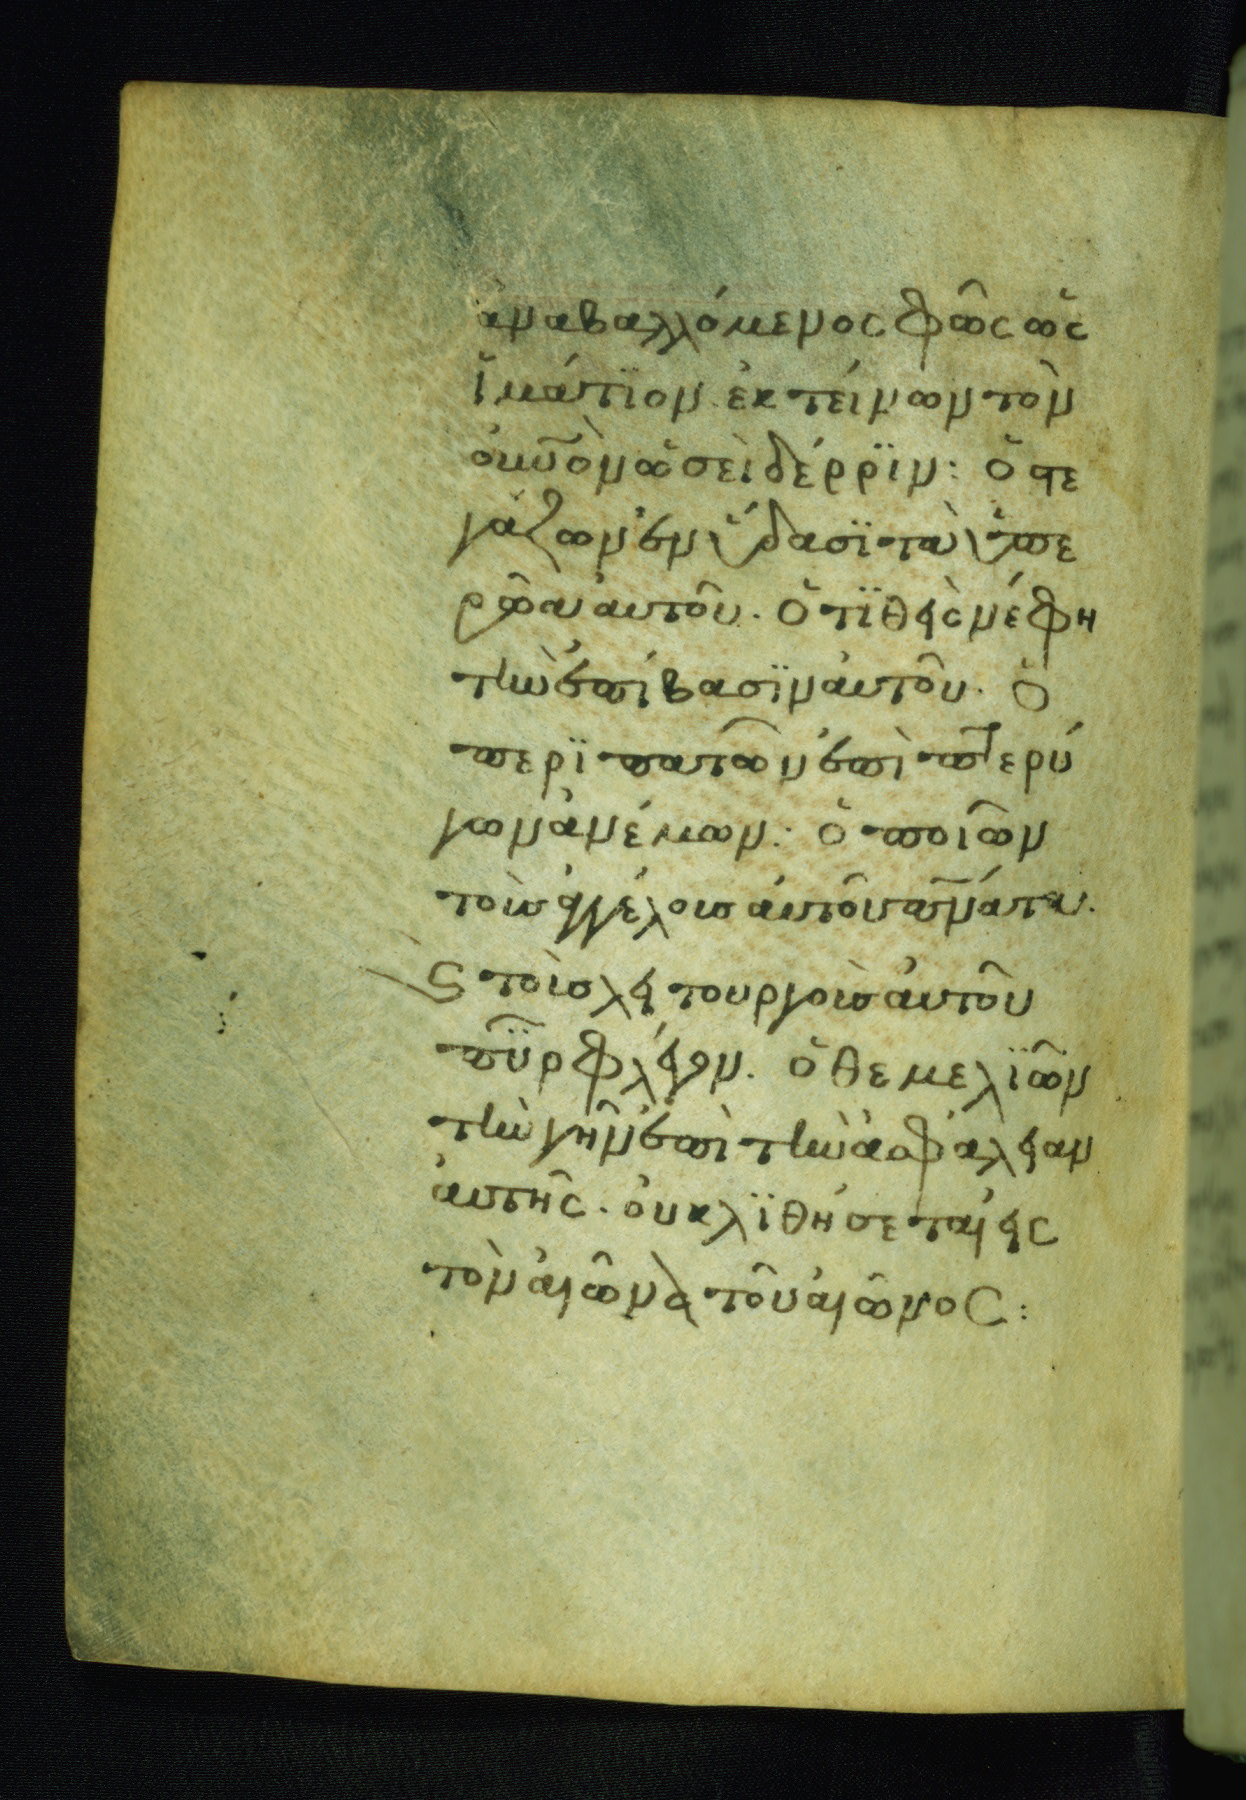 ἀναβαλλόμενος φῶς ὡς
ἱμάτϊον ἐκτείνων τὸν
ὀυ̅νὸν ὡσεὶ δέρρϊν: ὁ στε
γάζων ἐν ὕδασϊ τὰ ὑπε
ρῶα ἀυτοῦ. ὁ τϊθεὶς νέφη
τὴν ἐπίβασϊν ἀυτοῦ. ὁ
περϊπατῶν ἐπὶ πτερύ
γων ἀνέμων: ὁ ποιῶν
τοὺς ἀγγέλους ἀυτοῦ πν̅άτα.
ϛ τοὺς λειτουργοὺς ἀυτοῦ
πῦρ φλέγον. ὁ θεμελϊῶν
τὴν γῆν ἐπὶ τὴν ἀσφάλειαν
ἀυτῆς. ὀυ κλϊθήσεται εἰς
τὸν ἀιῶνα τοῦ ἀιῶνος: